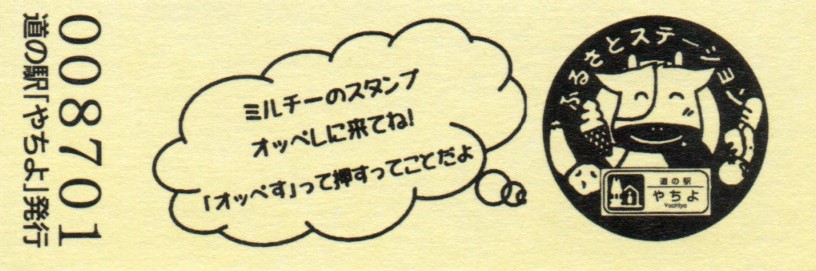 008701
道の駅「やちよ」発行
ミルチーのスタンプ
オッペしに来てね!
「オッペす」って押すってことだよ
ふるさとステーション
道の駅
やちよ
Yachiyo